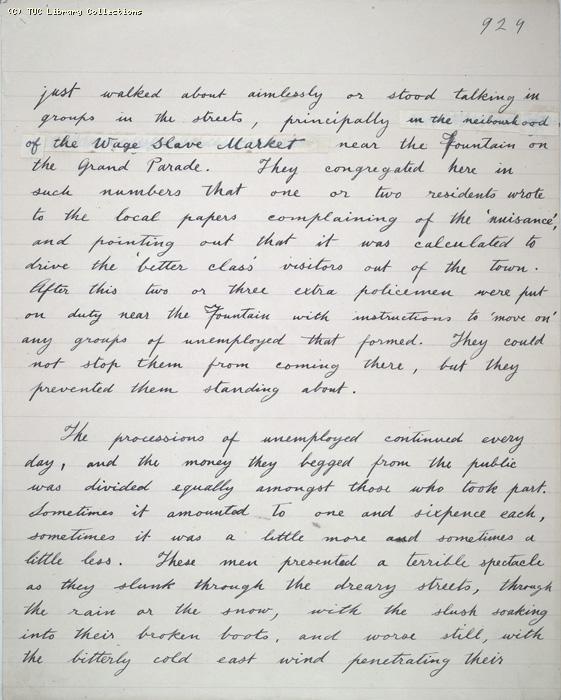 (C) TUC Library Collections
929
just walked about aimlessly or stood talking in
groups in the streets, principally in the neibourhood
of the Wage Slave Market near the Fountain on
the Grand Parade. They congregated here in
such numbers that one or two residents wrote
to the local papers complaining of the 'nuisance',
and pointing out that it was calculated to
drive the 'better class' visitors out of the town.
After this two or three extra policemen were put
on duty near the Fountain with instructions to 'move on'
any groups of unemployed that formed. They could
not stop them from coming there, but they
prevented them standing about.
The processions of unemployed continued every
day, and the money they begged from the public
was divided equally amongst those who took part.
Sometimes it amounted to one and sixpence each,
sometimes it was a little more and sometimes a
little less. These men presented a terrible spectacle
as they slunk through the dreary streets, through
the rain or the snow, with the slush soaking
into their broken boots, and worse still, with
the bitterly cold east wind penetrating their